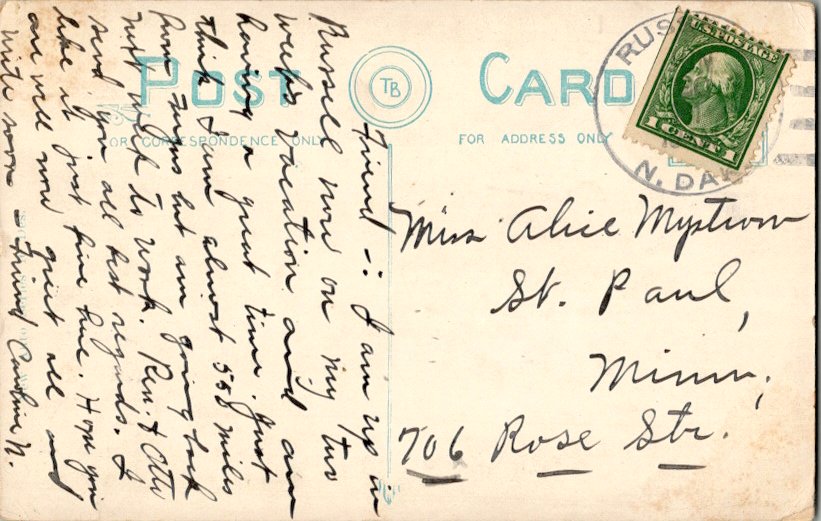 POST CARD
TB
FOR CORRESPONDENCE ONLY
FOR ADDRESS ONLY
RUSS
N. DAK
U.S. POSTAGE
1 CENT 1
Friend -: I am up in
Russell now on my two
weeks vacation and am
having a great time. Just
think I am almost 558 miles
from home but am going back
next week to work. Ren. & Otto
send you all best regards. I
like it just fine here. Hope you
are well now greet all and
write soon - Friend Caroline N.
Miss Alice Mystrom
St. Paul,
Minn.,
706 Rose Str.